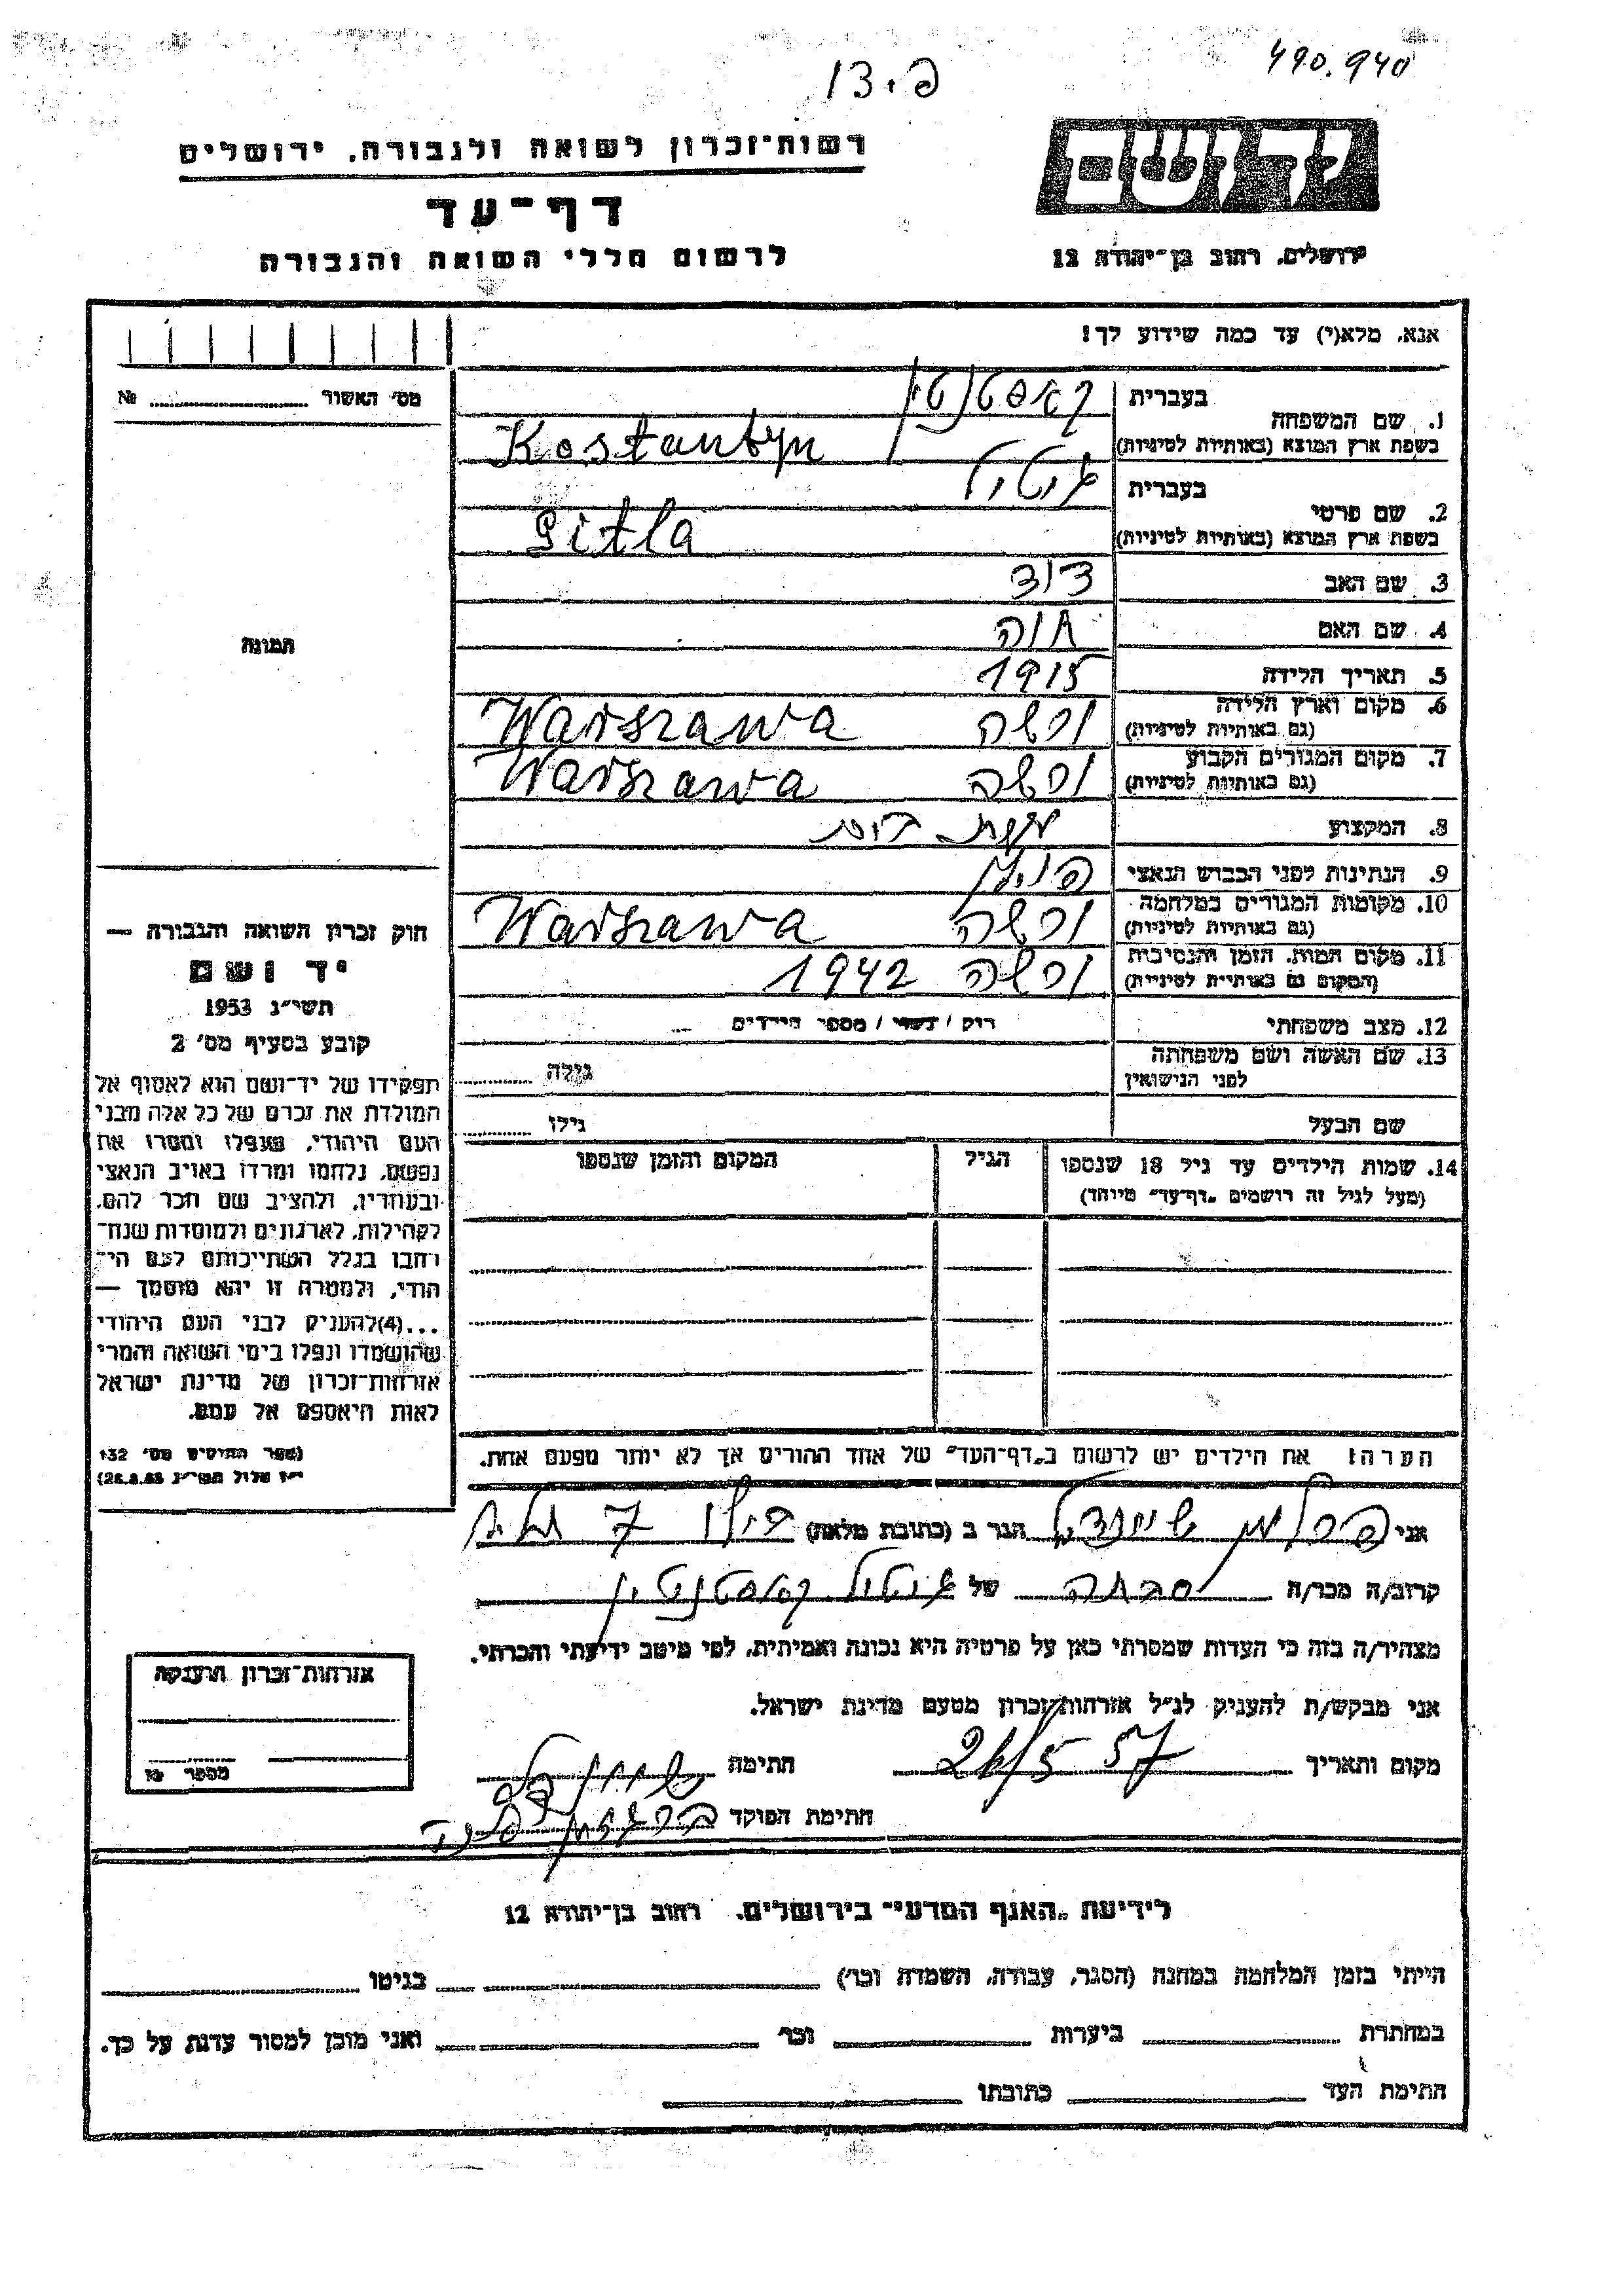 490.940
פ.13
רשות־זכרון לשואה ולגבורה, ירושלים
דף־עד
לרשום חללי השואה והגבורה
יד ושם
ירושלים, רחוב בן־יהודה 12
אנא, מלא(י) עד כמה שידוע לך!
מס׳ האשור № 
1. שם המשפחה
בעברית
קאסטנטין
בשפת ארץ המוצא (באותיות לטיניות)
Kostantyn
2. שם פרטי
בעברית
גיטל
בשפת ארץ המוצא (באותיות לטיניות)
Gitla
3. שם האב דוד
4. שם האם חוה
5. תאריך הלידה 1915
6. מקום וארץ הלידה ורשה Warszawa
(גם באותיות לטיניות)
7. מקום המגורים הקבוע ורשה Warszawa
(גם באותיות לטיניות)
8. המקצוע
9. הנתינות לפני הכבוש הנאצי
10. מקומות המגורים במלחמה ורשה Warszawa
(גם באותיות לטיניות)
11. מקום המות, הזמן והנסיבות ורשה 1942
(המקום גם באותיות לטיניות)
12. מצב משפחתי רוק / נשוי / מספר הילדים
13. שם האשה ושם משפחתה גילה
לפני הנישואין
שם הבעל גילו
14. שמות הילדים עד גיל 18 שנספו הגיל המקום והזמן שנספו
(מעל לגיל זה רושמים „דף־עד״ מיוחד)
תמונה
חוק זכרון השואה והגבורה —
יד ושם
תשי״ג 1953
קובע בסעיף מס׳ 2
תפקידו של יד־ושם הוא לאסוף אל
המולדת את זכרם של כל אלה מבני
העם היהודי, שנפלו ומסרו את
נפשם, נלחמו ומרדו באויב הנאצי
ובעוזריו, ולהציב שם וזכר להם,
לקהילות, לארגונים ולמוסדות שנח־
רבו בגלל השתייכותם לעם היה־
הודי, ולמטרה זו יהא מוסמך —
...(4)להעניק לבני העם היהודי
שהושמדו ונפלו בימי השואה והמרי
אזרחות־זכרון של מדינת ישראל
לאות היאספם אל עמם.
(ספר החוקים מס׳ 132
י״ז אלול תשי״ג 28.8.53)
הערה: את הילדים יש לרשום ב„דף־העד״ של אחד ההורים אך לא יותר מפעם אחת.
אני פרלמן שיינדל הגר ב (כתובת מלאה)
קרוב/ה מכר/ה של גיטל קאסטנטין
מצהיר/ה בזה כי העדות שמסרתי כאן על פרטיה היא נכונה ואמיתית, לפי מיטב ידיעתי והכרתי.
אני מבקש/ת להעניק לנ״ל אזרחות־זכרון מטעם מדינת ישראל.
מקום ותאריך 26/5 57 חתימה
חתימת הפוקד
אזרחות־זכרון הוענקה
מספר №
לידיעת „האגף המדעי״ בירושלים, רחוב בן־יהודה 12
הייתי בזמן המלחמה במחנה (הסגר, עבודה, השמדה וכו׳) בגיטו
במחתרת ביערות וכו׳ ואני מוכן למסור עדות על כך.
חתימת העד כתובתו